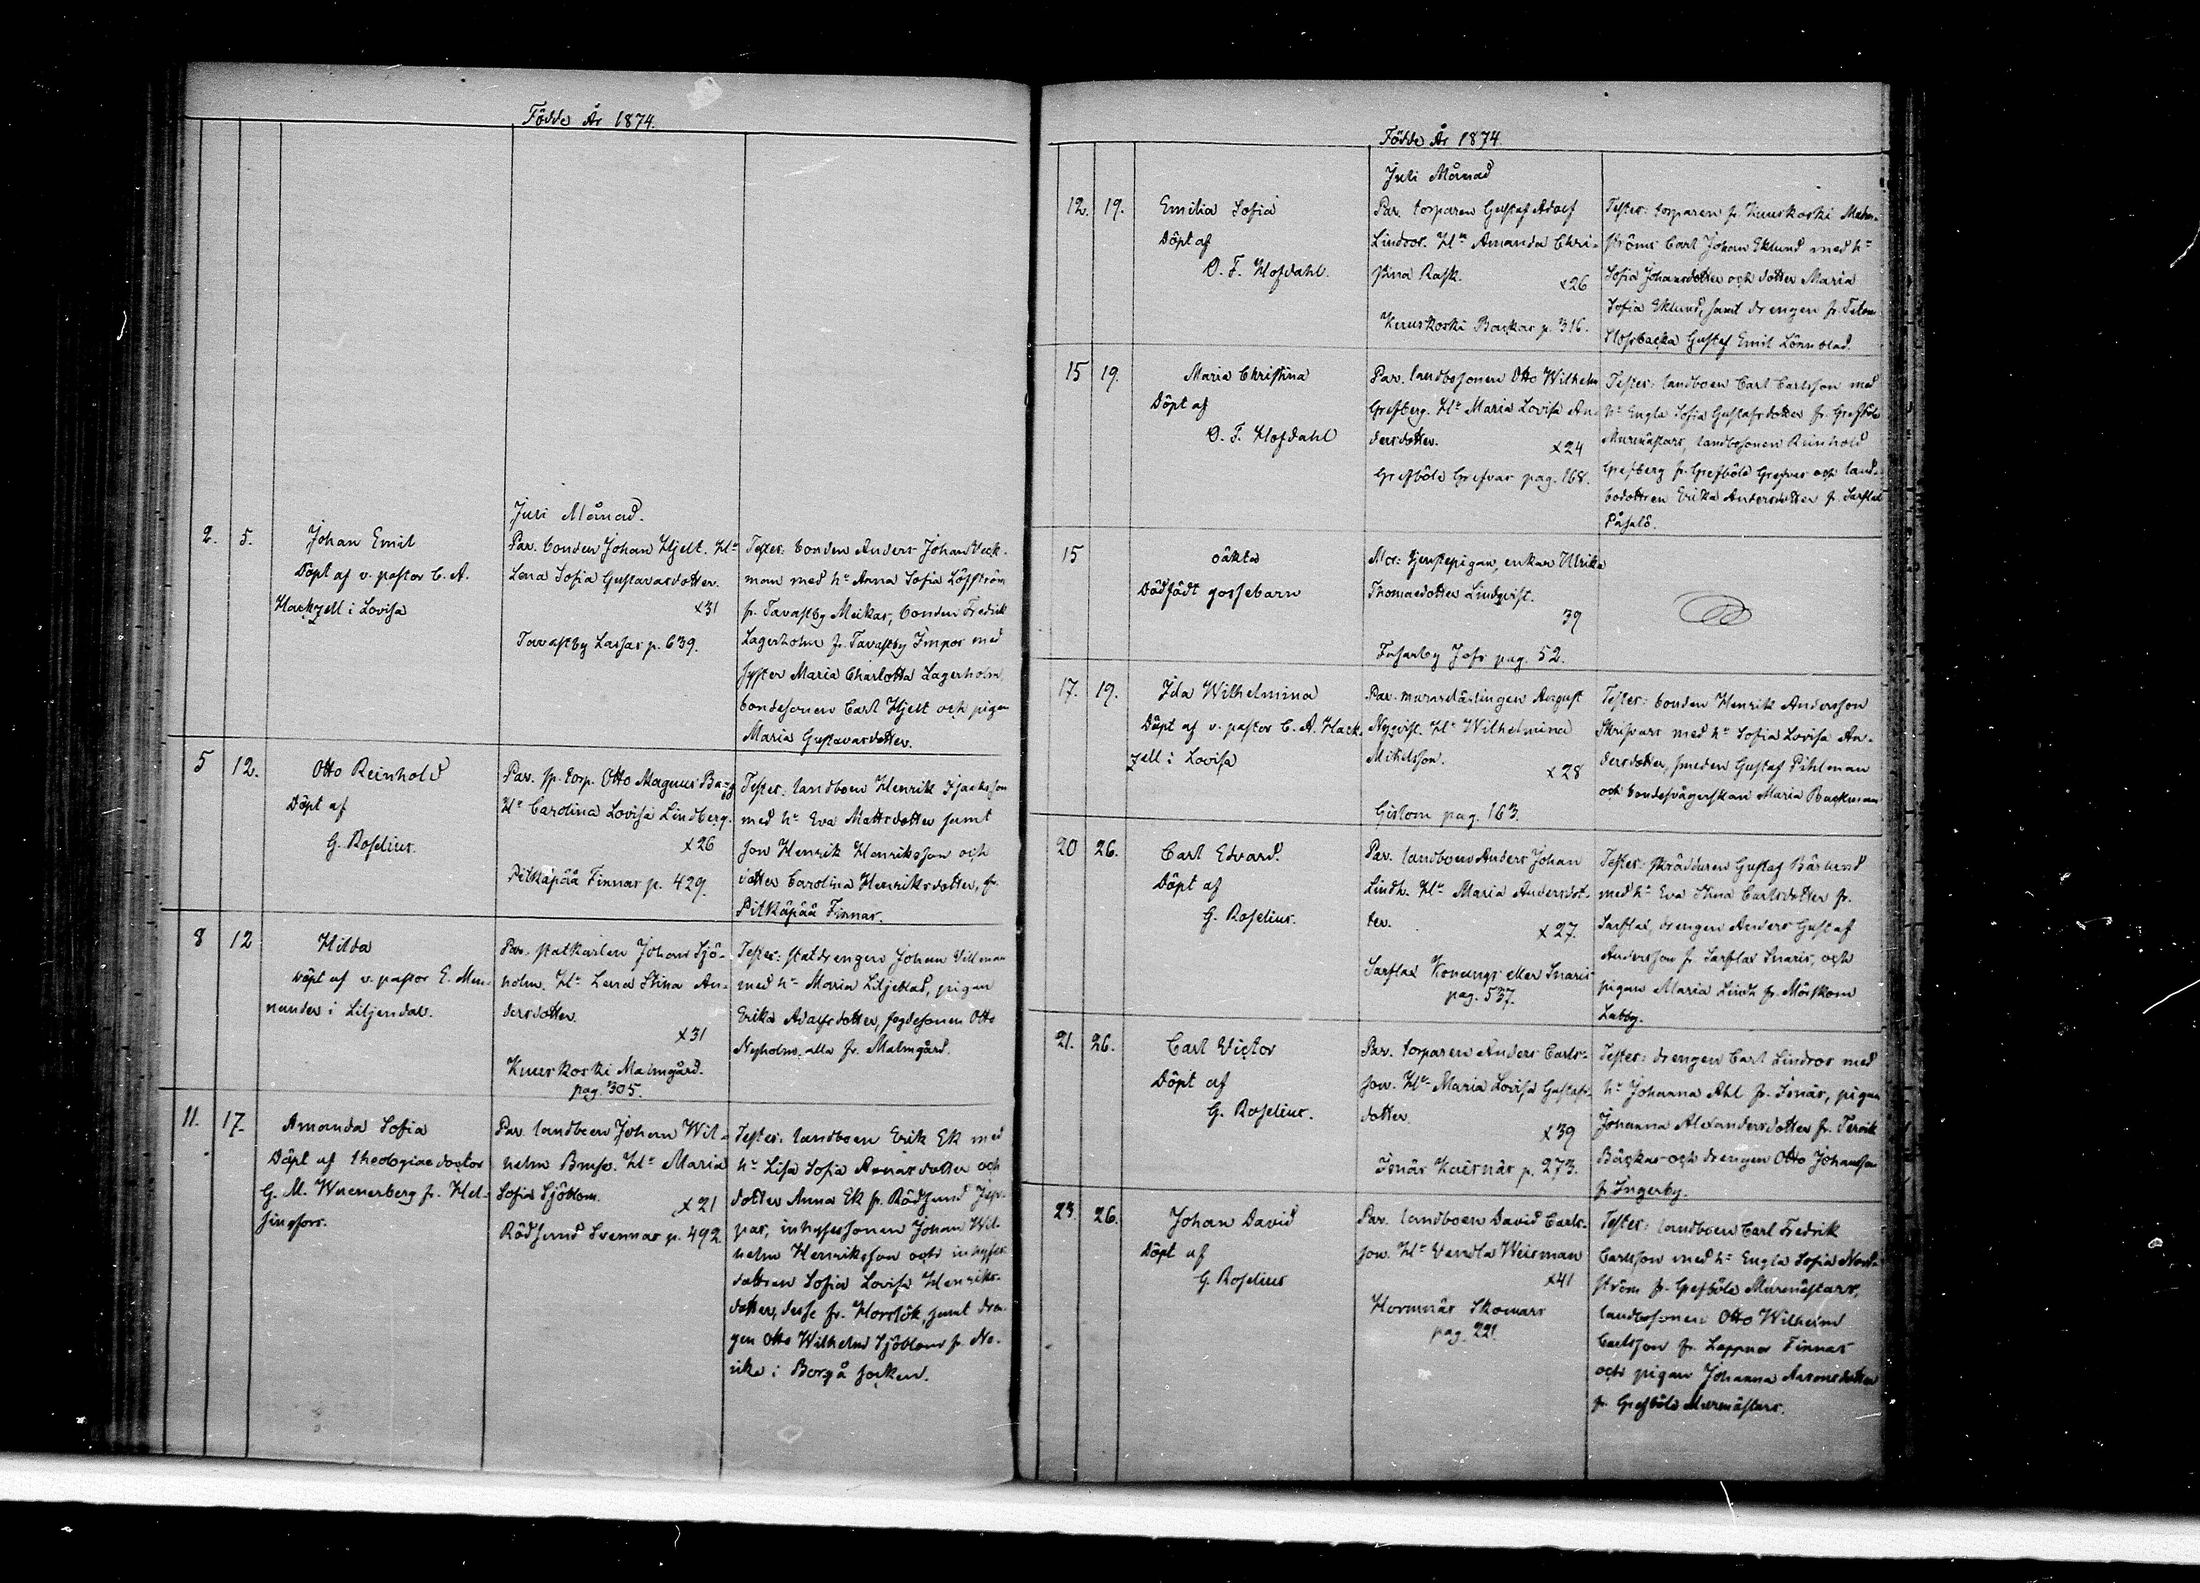 Födde År 1874.
Juli Månad.
2. 5.
Johan Emil
Döpt af v. pastor C. A.
Hackzell i Lovisa
Par. bonden Johan Hjelt. Hu
Lena Sofia Gustavasdotter.
x31
Tavastby Lassas p. 639.
Tester: bonden Anders Johan Beck-
man med hu Anna Sofia Löfström
fr. Tavastby Meikas, bonden Fredrik
Lagerholm fr. Tavastby Impos med
syster Maria Charlotta Lagerholm,
bondesonen Carl Hjelt och pigan
Maria Gustavasdotter.
5 12.
Otto Reinhold
Döpt af
G. Roselius.
Par. sp. torp. Otto Magnus
Hu Carolina Lovisa Lindberg.
x26
Pitkäpää Finnas p. 429.
Tester: landboen Henrik Isaaksson
med hu Eva Mattsdotter samt
son Henrik Henriksson och
dotter Carolina Henriksdotter, fr.
Pitkäpää Finnas.
8 12
Hilda
Döpt af v. pastor E. Men-
nander i Liljendal.
Par. statkarlen Johan Sjö-
holm. Hu Lena Stina An-
dersdotter.
x31
Kuuskoski Malmgård.
pag. 305.
Tester: statdrengen Johan Sillman
med hu Maria Liljeblad, pigan
Erika Adolfsdotter, fogdesonen Otto
Nyholm, alla fr. Malmgård.
11. 17.
Amanda Sofia
Döpt af theologiae doctor
G. M. Waenerberg fr. Hel-
singfors.
Par. landboen Johan Wil-
helm Buss. Hu Maria
Sofia Sjöblom.
x21
Rödsund Svennas p. 492
Tester: landboen Erik Ek med
hu Lisa Sofia dotter och
dotter Anna Ek fr. Rödsund Jep-
pas, inhysessonen Johan Wil-
helm Henriksson och inhyses
dottren Sofia Lovisa Henriks-
dotter, desse fr. Horslök, samt dren-
gen Otto Wilhelm Sjöblom fr. Ne-
rika i Borgå socken.
Födde År 1874.
Juli Månad
12. 19.
Emilia Sofia
Döpt af
O. F. Hofdahl.
Par. torparen Gustaf Adolf
Lindroos. Hu Amanda Chri-
stina Rask.
x26
Kuuskoski Backas p. 316.
Tester: torparen fr. Kuuskoski Malm-
ströms Carl Johan Eklund med hu
Sofia Johansdotter och dotter Maria
Sofia Eklund, samt drengen fr.
Gustaf Emil Lönnblad.
15 19.
Maria Christina
Döpt af
O. F. Hofdahl
Par. landbosonen Otto Wilhelm
Grefberg. Hu Maria Lovisa An-
dersdotter.
x24
Grefböle Grefvas pag. 168.
Tester: landboen Carl Carlsson med
hu Engla Sofia Gustafsdotter fr. Grefböle
Murmästars, landbosonen Reinhold
Grefberg fr. Grefböle Grefvas och land-
bodottren Erika Andersdotter fr. Sarflax
Påsalö.
15
oäkta
Dödfödt gossebarn
Mor: tjenstepigan, enkan Ulrika
Thomasdotter Lindqvist.
39
Fasarby Jofs pag. 52.
17. 19.
Ida Wilhelmina
Döpt af v. pastor C. A. Hack-
zell i Lovisa
Par. murarelärlingen August
Nyqvist. Hu Wilhelmina
Mikelsson.
x28
Gislom pag. 163.
Tester: bonden Henrik Andersson
Skrifvars med hu Sofia Lovisa An-
dersdotter, smeden Gustaf Pihlman
och bondesvägerskan Maria Backman
20 26.
Carl Edvard.
Döpt af
G. Roselius.
Par. landboen Anders Johan
Lindh. Hu Maria Andersdot-
ter.
x27.
Sarflax Konungs eller Snaris
pag. 537.
Tester: skräddaren Gustaf Bärlund
med hu Eva Stina Carlsdotter fr.
Sarflax, drengen Anders Gustaf
Andersson fr. Sarflax Snaris, och
pigan Maria Lindh fr. Mörskom
Labby.
21. 26.
Carl Victor
Döpt af
G. Roselius.
Par. torparen Anders Carls-
son. Hu Maria Lovisa Gustafs-
dotter.
x39
Isnäs Kärnäs p. 273.
Tester: drengen Carl Lindroos med
hu Johanna Ahl fr. Isnäs, pigan
Johanna Alexandersdotter fr. Tervik
Bäckas och drengen Otto Johansson
fr. Ingerby.
23. 26.
Johan David
Döpt af
G. Roselius
Par. landboen David Carls-
son. Hu Vendla Weisman
x41
Hormnäs Skomars
pag. 221.
Tester: landboen Carl Fredrik
Carlsson med hu Engla Sofia Nord-
ström fr. Grefböle Murmästars,
landbosonen Otto Wilhelm
Carlsson fr. Lappnor Finnas
och pigan Johanna Aronsdotter
fr. Grefböle Murmästars.